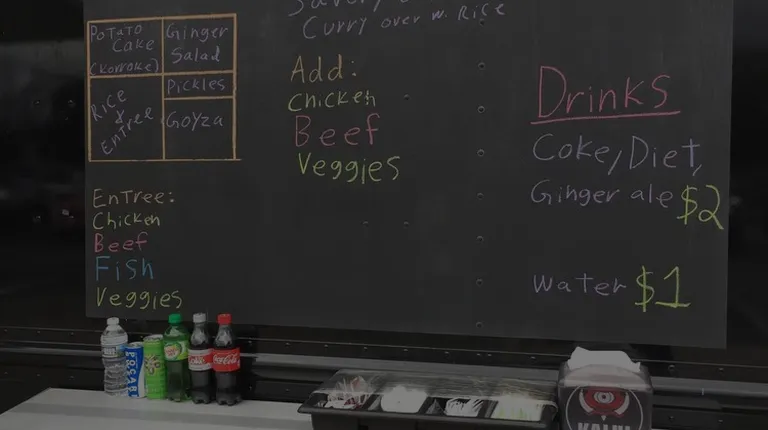 Potato
Cake
(Korroke)
Ginger
Salad
Pickles
Rice
&
Entree
Goyza
Entree:
Chicken
Beef
Fish
Veggies
Curry over w. Rice
Add:
Chicken
Beef
Veggies
Drinks
Coke, Diet,
Ginger ale $2
Water $1
Coca-Cola